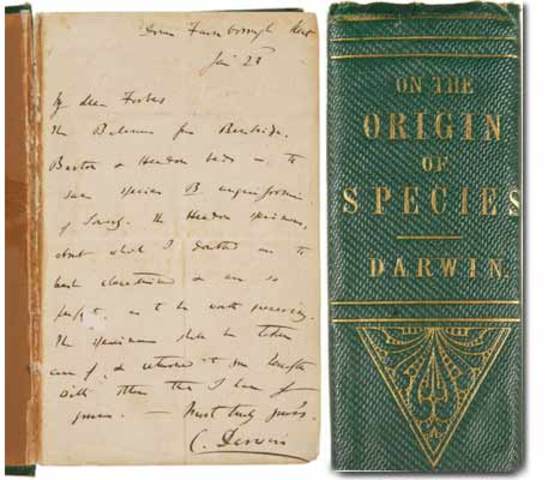 Down Farnborough Kent
Jan 23
My dear Forbes
The Balanus from
Barton & Headon to
species B
of Sowerby. The Headon specimens,
about which I doubted
are so
perfect, as to be worth preserving.
The specimens shall be taken
care of, & returned to you
with that I have of
yours. — Most truly yours.
C. Darwin
ON THE
ORIGIN
OF
SPECIES
DARWIN.